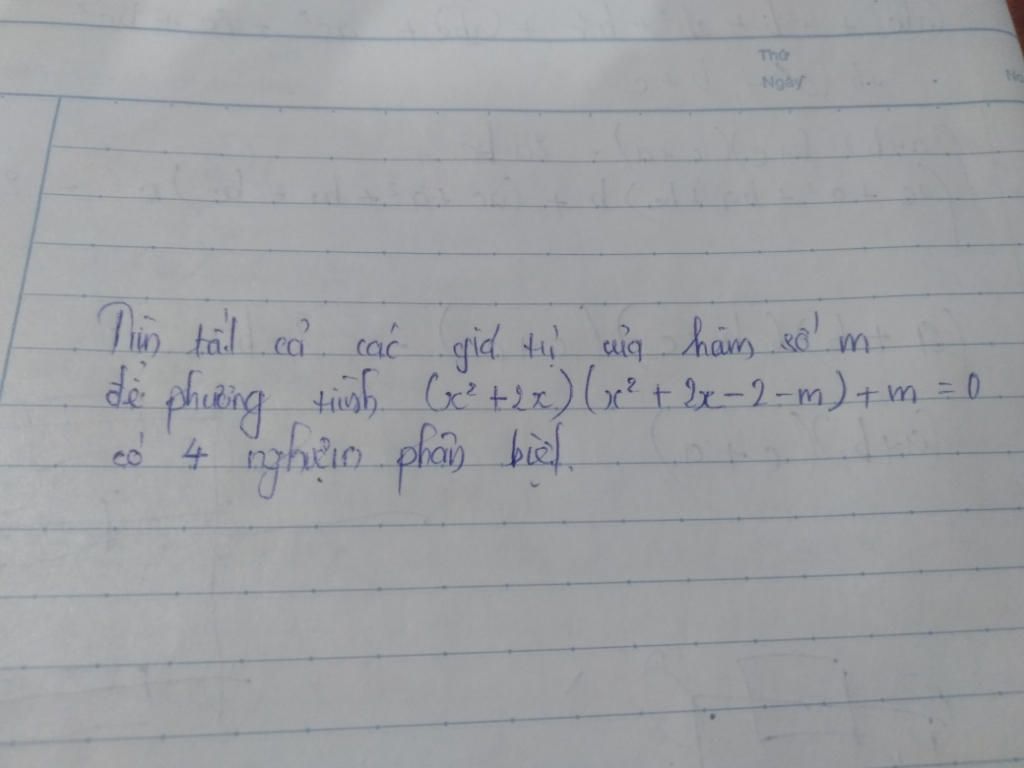 Thứ
Ngày
Tìm tất cả các giá trị của hàm số m
để phương trình (x² + 2x)(x² + 2x - 2 - m) + m = 0
có 4 nghiệm phân biệt.